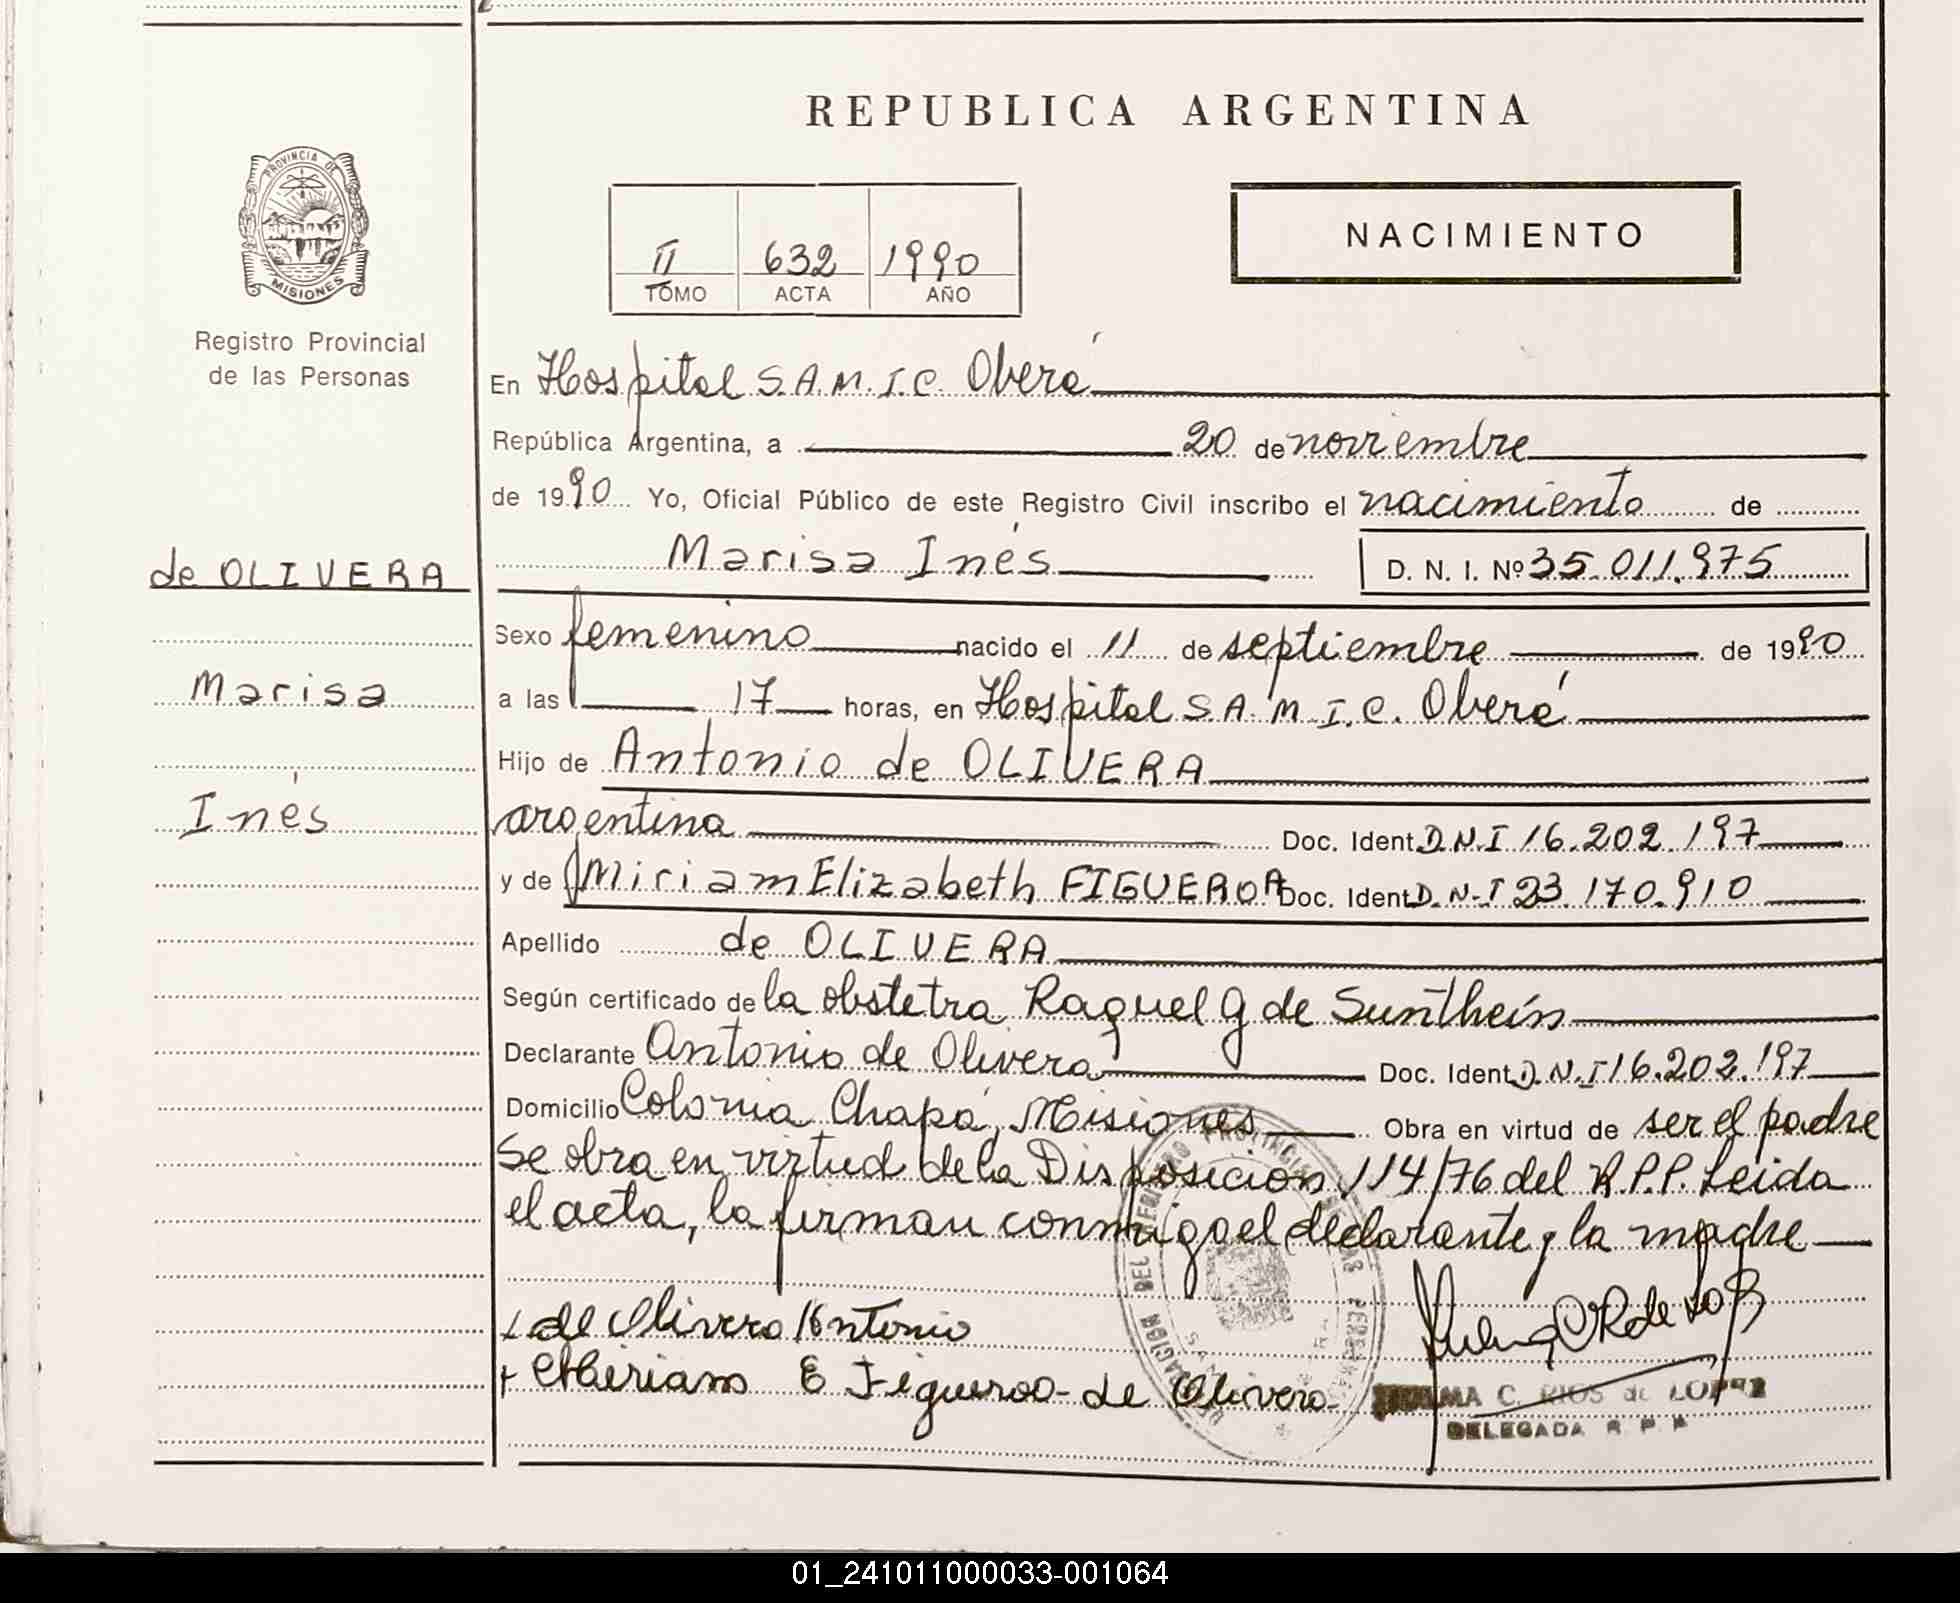 REPUBLICA ARGENTINA
PROVINCIA DE
MISIONES
Registro Provincial
de las Personas
II 632 1990
TOMO ACTA AÑO
NACIMIENTO
En Hospital S.A.M.I.C. Oberá
República Argentina, a 20 de noviembre
de 1990 Yo, Oficial Público de este Registro Civil inscribo el nacimiento de
Marisa Inés D. N. I. Nº 35.011.975
de OLIVERA
Marisa
Inés
Sexo femenino nacido el 11 de septiembre de 1990
a las 17 horas, en Hospital S.A.M.I.C. Oberá
Hijo de Antonio de OLIVERA
argentina Doc. Ident. D.N.I 16.202.197
y de Miriam Elizabeth FIGUEROA Doc. Ident. D.N.I 23.170.910
Apellido de OLIVERA
Según certificado de la obstetra Raquel G de
Declarante Antonio de Olivera Doc. Ident. D.N.I 16.202.197
Domicilio Colonia Chapá, Misiones Obra en virtud de ser el padre
Se obra en virtud de la Disposición 114/76 del R.P.P. Leida
el acta, la firman conmigo el declarante y la madre
de Olivera Antonio
Miriam E Figueroa de Olivera
C. RIOS de LOPEZ
DELEGADA R. P. P.
01_241011000033-001064